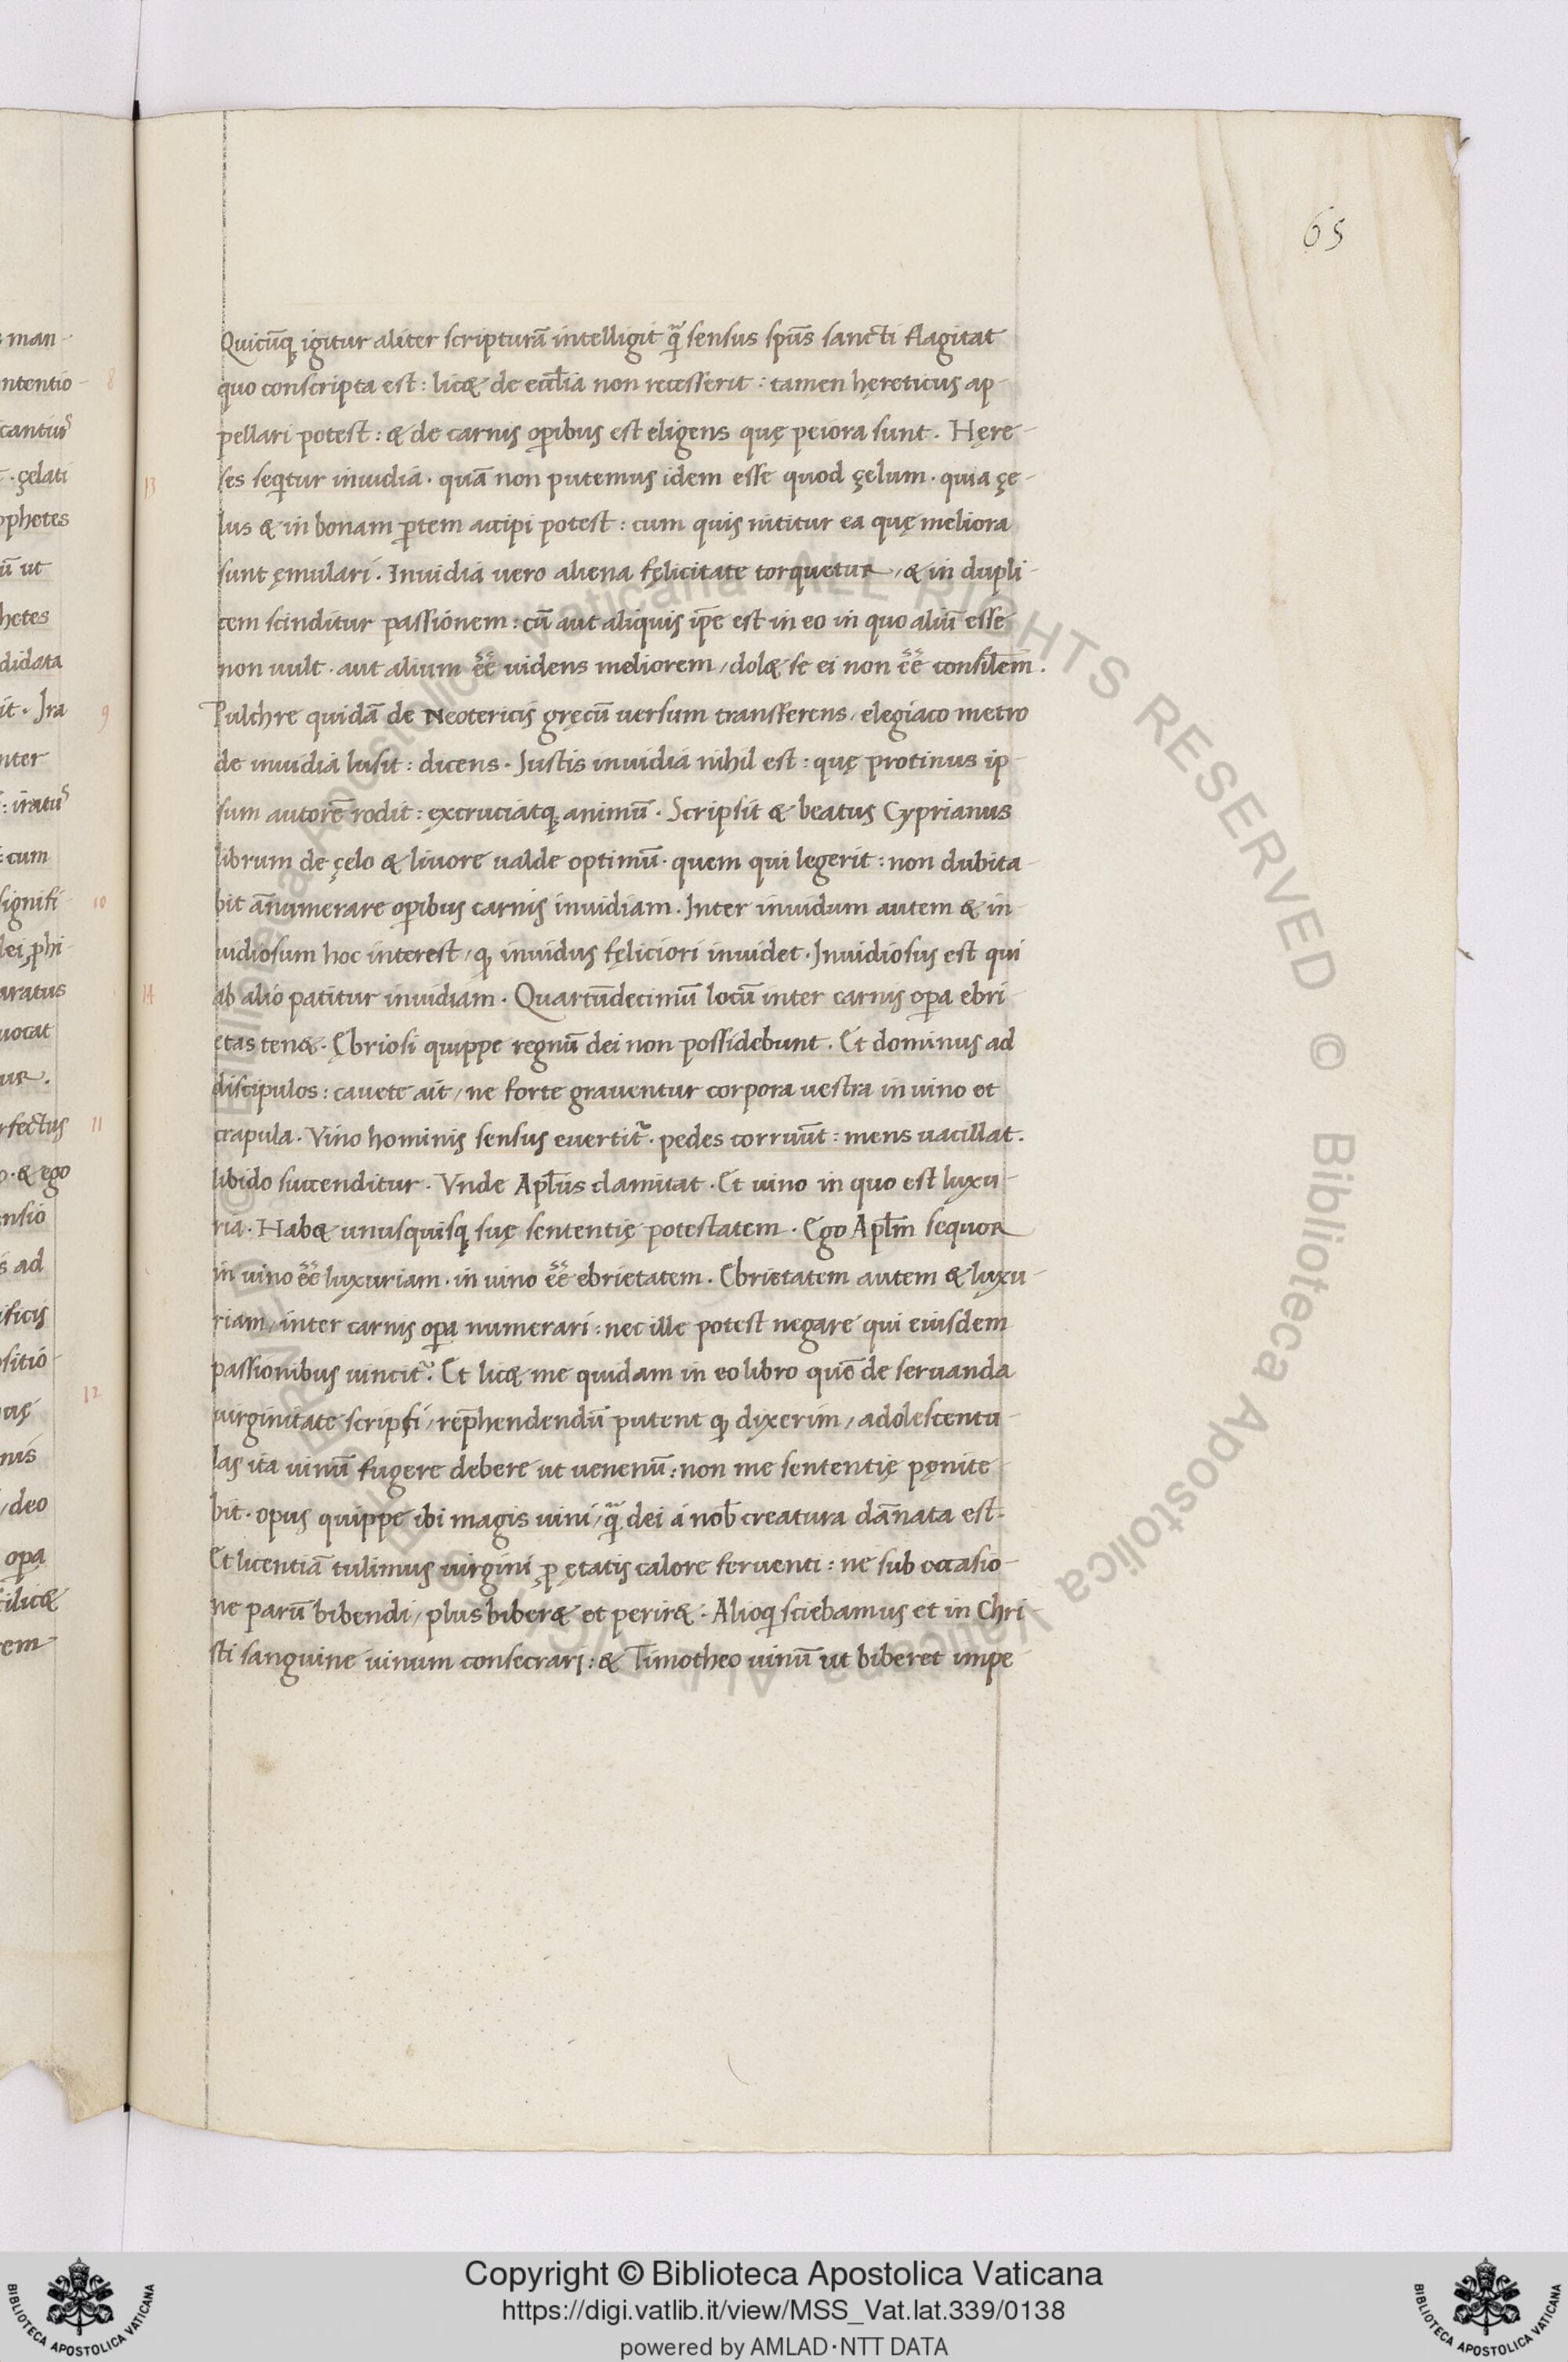 65
Quicūq; igitur aliter scripturā intelligit q̃ sensus spūs sancti flagitat
quo conscripta est: lic& de eccl̄ia non recesserit: tamen hęreticus ap-
pellari potest: & de carnis oꝑibus est eligens quę peiora sunt. Hęre-
13 ses seqitur inuidia. quā non putemus idem esse quod çelum. quia çe-
lus & in bonam ꝑtem accipi potest: cum quis nititur ea quę meliora
sunt ęmulari. Inuidia uero aliena fęlicitate torquetur, & in dupli-
cem scinditur passionem: cū aut aliquis ip̄e est in eo in quo aliū esse
non uult. aut alium ēē uidens meliorem, dol& se ei non ēē consilem̄.
Pulchre quidā de Neotericis gręcū uersum transferens, elegiaco metro
de inuidia lusit: dicens. Justis inuidia nihil est: quę protinus ip-
sum autorē rodit: excruciatq; animū. Scripsit & beatus Cyprianus
librum de çelo & liuore ualde optimū. quem qui legerit: non dubita-
bit ānumerare oꝑibus carnis inuidiam. Inter inuidum autem & in-
uidiosum hoc interest, q; inuidus fęliciori inuidet. Inuidiosus est qui
14 ab alio patitur inuidiam. Quartūdecimū locū inter carnis oꝑa ebri-
etas ten&. Ębriosi quippe regnū dei non possidebunt. Et dominus ad
discipulos: cauete ait, ne forte grauentur corpora uestra in uino et
crapula. Vino hominis sensus euertit᷑. pedes corruūt: mens uacillat.
libido succenditur. Vnde Apl̄us clamitat. Et uino in quo est luxu-
ria. Hab& unusquisq; suę sententię potestatem. Ego Apl̄m sequor
in uino ēē luxuriam. in uino ēē ebrietatem. Ebrietatem autem & luxu-
riam, inter carnis oꝑa numerari: nec ille potest negare qui eiusdem
passionibus uincit᷑. Et lic& me quidam in eo libro quē de seruanda
uirginitate scripsi, rep̄hendendū putent q; dixerim, adolescentu-
las ita uinū fugere debere ut uenenū: non me sententię pęnite-
bit. opus quippe ibi magis uini, q̃ dei á nob̄ creatura dānata est.
Et licentiā tulimus uirgini ꝓ ętatis calore feruenti: ne sub occasio-
ne parū bibendi, plus biber& et perir&. Alioqi sciebamus et in Chri-
sti sanguine uinum consecrari: & Timotheo uinū ut biberet impe-
man-
ntentio-
8
çelati
ophetes
ū ut
hetes
didata
it. Ira
9
nter
: iratus
: cum
signifi-
10
aratus
uocat
ur.
rfectus
11
o. & ego
ensio
s ad
ificis
ositio-
12
nis
, deo
oꝑa
cilic&
rem-
© Biblioteca Apostolica Vaticana ALL RIGHTS RESERVED © Biblioteca Apostolica Vaticana ALL RIGHTS RESERVED
Copyright © Biblioteca Apostolica Vaticana
https://digi.vatlib.it/view/MSS_Vat.lat.339/0138
powered by AMLAD·NTT DATA
BIBLIOTECA APOSTOLICA VATICANA
BIBLIOTECA APOSTOLICA VATICANA